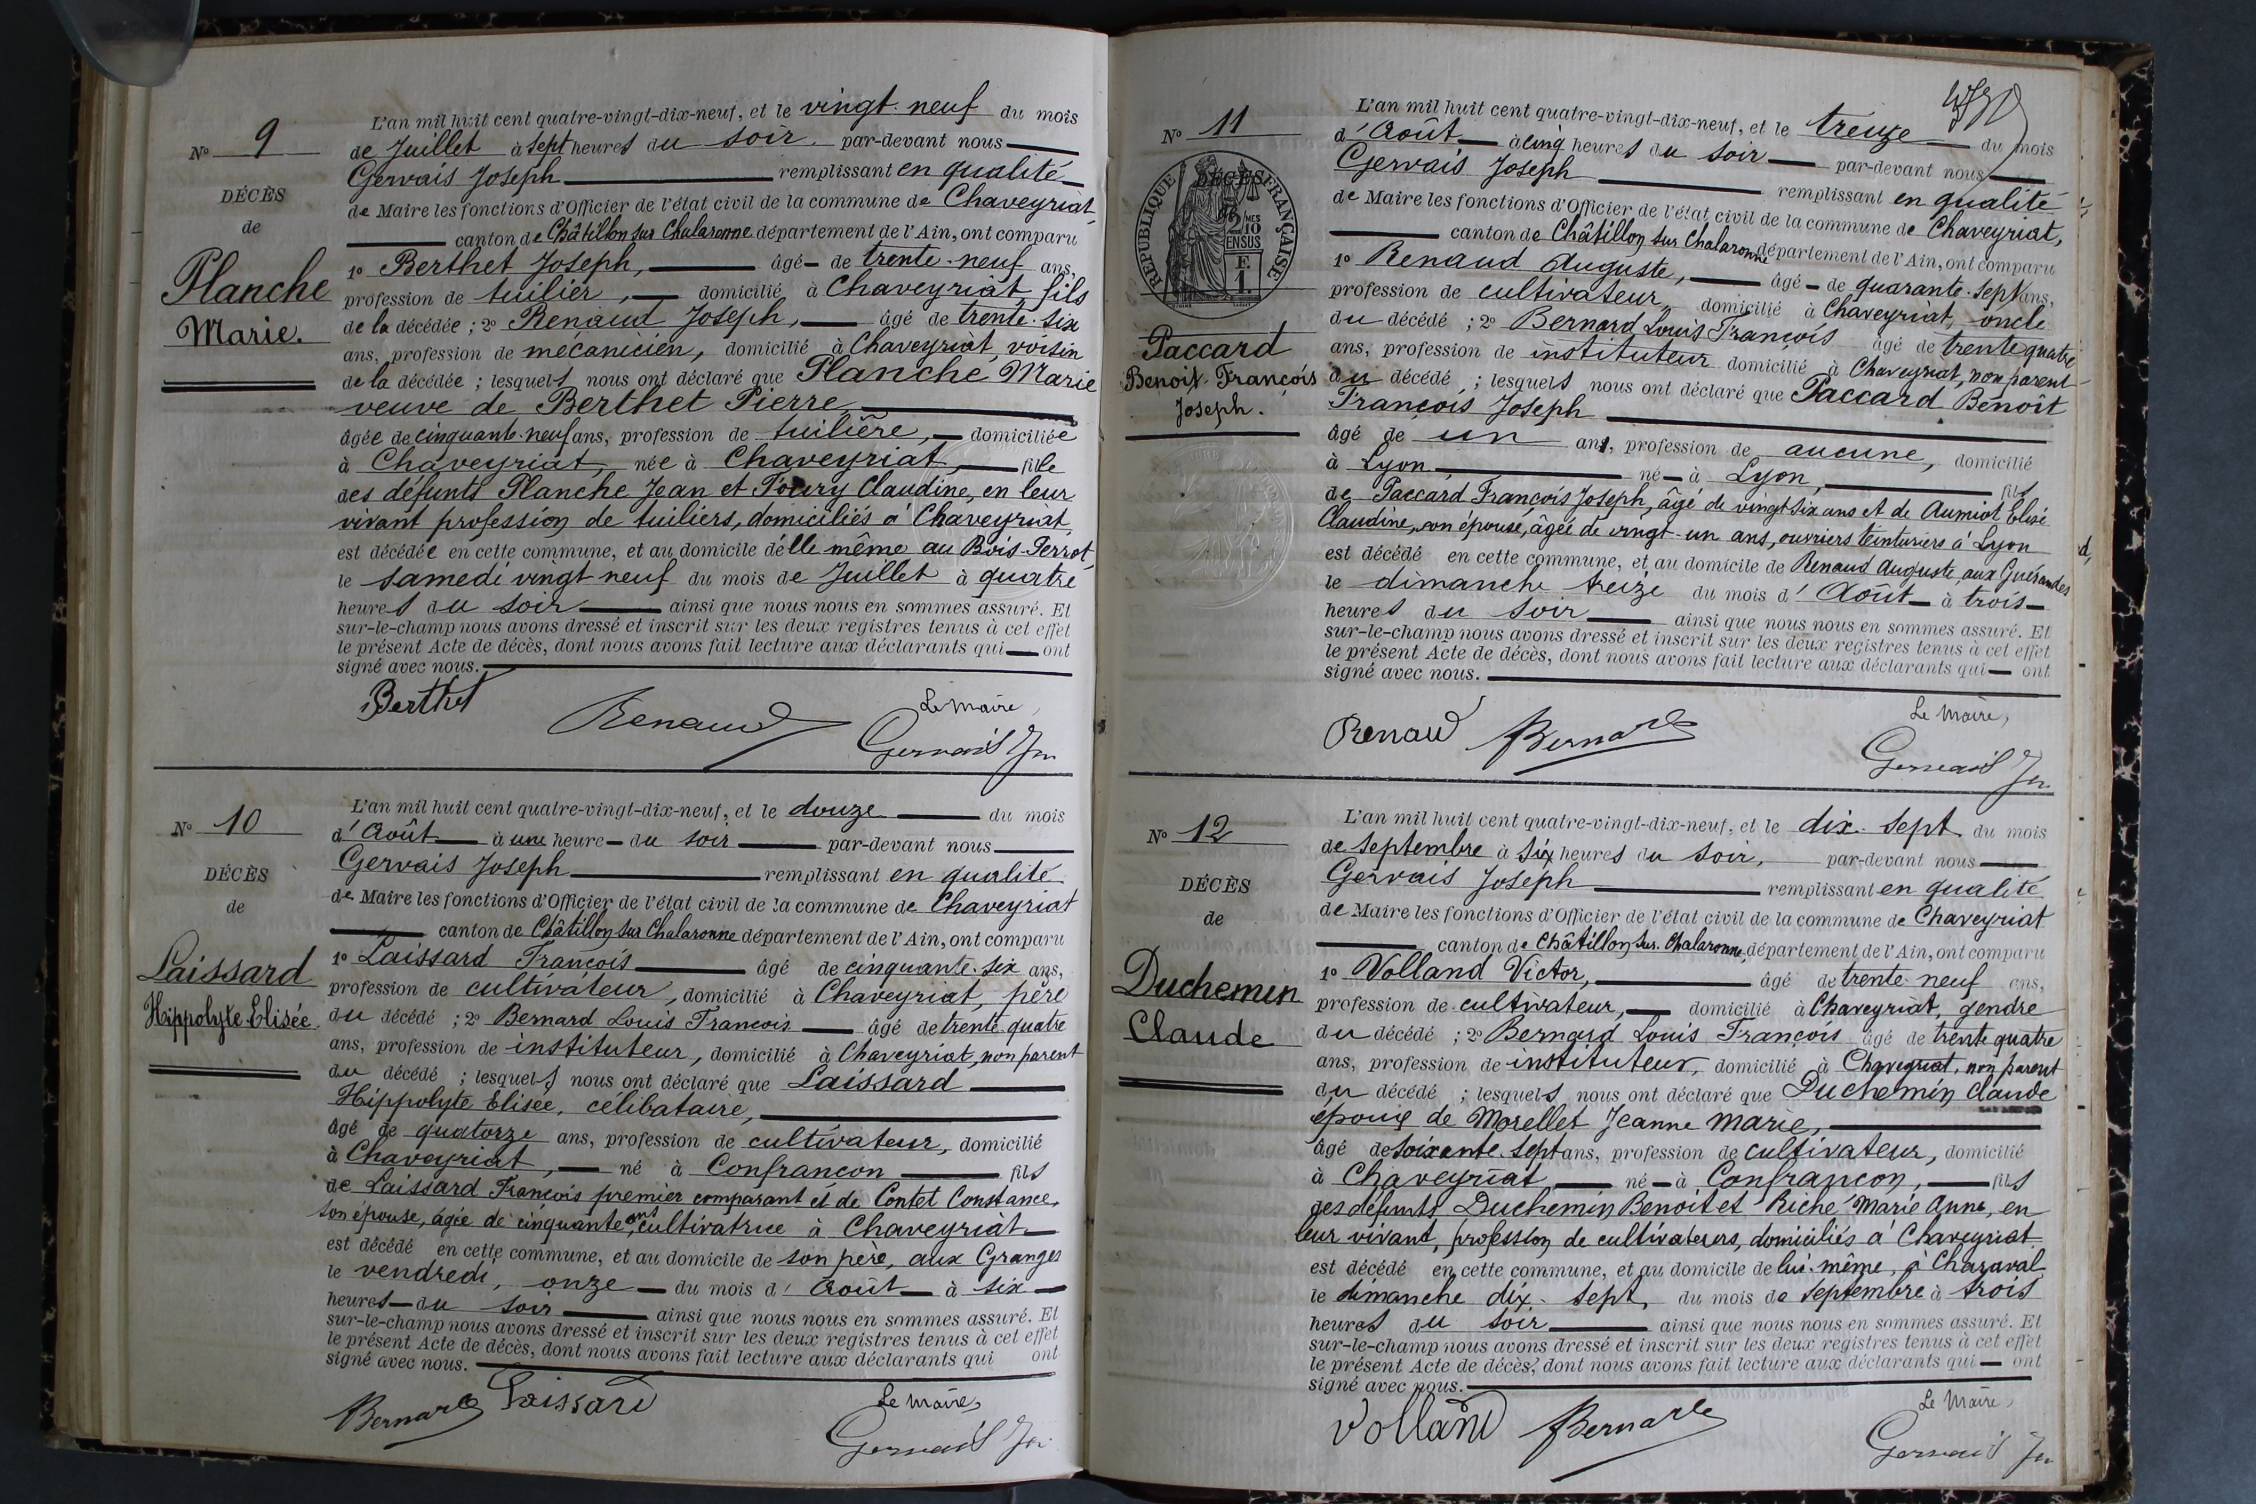 L'an mil huit cent quatre-vingt-dix-neuf, et le vingt-neuf du mois
No 9
de Juillet à sept heures du soir par-devant nous
Gervais Joseph remplissant en qualité
DÉCÈS
de Maire les fonctions d'Officier de l'état civil de la commune de Chaveyriat,
de
canton de Châtillon sur Chalaronne département de l'Ain, ont comparu
Planche
Marie.
1o Berthet Joseph, âgé de trente-neuf ans,
profession de tuilier, domicilié à Chaveyriat, fils
de la décédée ; 2o Renaud Joseph, âgé de trente-six
ans, profession de mécanicien, domicilié à Chaveyriat, voisin
de la décédée ; lesquels nous ont déclaré que Planche Marie
veuve de Berthet Pierre
âgée de cinquante-neuf ans, profession de tuilière, domiciliée
à Chaveyriat, née à Chaveyriat, fille
des défunts Planche Jean et Poury Claudine, en leur
vivant profession de tuiliers, domiciliés à Chaveyriat,
est décédée en cette commune, et au domicile d'elle même au Bois-Perrot,
le samedi vingt neuf du mois de Juillet à quatre
heures du soir ainsi que nous nous en sommes assuré. Et
sur-le-champ nous avons dressé et inscrit sur les deux registres tenus à cet effet
le présent Acte de décès, dont nous avons fait lecture aux déclarants qui ont
signé avec nous.
Berthet Renaud Le Maire,
Gervais Jh
L'an mil huit cent quatre-vingt-dix-neuf, et le douze du mois
No 10
d'Août à une heure du soir par-devant nous
Gervais Joseph remplissant en qualité
DÉCÈS
de Maire les fonctions d'Officier de l'état civil de la commune de Chaveyriat
de
canton de Châtillon sur Chalaronne département de l'Ain, ont comparu
Laissard
Hippolyte Elisée.
1o Laissard François âgé de cinquante-six ans,
profession de cultivateur, domicilié à Chaveyriat, père
du décédé ; 2o Bernard Louis François âgé de trente-quatre
ans, profession de instituteur, domicilié à Chaveyriat, non parent
du décédé ; lesquels nous ont déclaré que Laissard
Hippolyte Elisée, célibataire,
âgé de quatorze ans, profession de cultivateur, domicilié
à Chaveyriat, né à Confrançon fils
de Laissard François premier comparant et de Contet Constance,
son épouse, âgée de cinquante ans, cultivatrice à Chaveyriat
est décédé en cette commune, et au domicile de son père, aux Granges
le vendredi, onze du mois d'Août à six
heures du soir ainsi que nous nous en sommes assuré. Et
sur-le-champ nous avons dressé et inscrit sur les deux registres tenus à cet effet
le présent Acte de décès, dont nous avons fait lecture aux déclarants qui ont
signé avec nous.
Bernard Laissard Le Maire,
Gervais Jh
L'an mil huit cent quatre-vingt-dix-neuf, et le treize du mois
No 11
d'Août à cinq heures du soir par-devant nous
Gervais Joseph remplissant en qualité
RÉPUBLIQUE FRANÇAISE
DÉCÈS
2 MES
10
EN SUS
F.
1.
de Maire les fonctions d'Officier de l'état civil de la commune de Chaveyriat,
canton de Châtillon sur Chalaronne département de l'Ain, ont comparu
1o Renaud Auguste, âgé de quarante-sept ans,
profession de cultivateur, domicilié à Chaveyriat, oncle
du décédé ; 2o Bernard Louis François âgé de trente quatre
Paccard
Benoit François
Joseph.
ans, profession de instituteur domicilié à Chaveyriat, non parent
du décédé ; lesquels nous ont déclaré que Paccard Benoît
François Joseph
âgé de un ans, profession de aucune, domicilié
à Lyon né à Lyon, fils
de Paccard François Joseph, âgé de vingt six ans et de Aumiot Elise
Claudine, son épouse, âgée de vingt-un ans, ouvriers teinturiers à Lyon
est décédé en cette commune, et au domicile de Renaud Auguste, aux Guérandes
le dimanche treize du mois d'Août à trois
heures du soir ainsi que nous nous en sommes assuré. Et
sur-le-champ nous avons dressé et inscrit sur les deux registres tenus à cet effet
le présent Acte de décès, dont nous avons fait lecture aux déclarants qui ont
signé avec nous.
Renaud Bernard Le Maire,
Gervais Jh
L'an mil huit cent quatre-vingt-dix-neuf, et le dix-sept du mois
No 12
de Septembre à six heures du soir, par-devant nous
Gervais Joseph remplissant en qualité
DÉCÈS
de Maire les fonctions d'Officier de l'état civil de la commune de Chaveyriat
de
canton de Châtillon sur Chalaronne, département de l'Ain, ont comparu
Duchemin
Claude
1o Volland Victor, âgé de trente-neuf ans,
profession de cultivateur, domicilié à Chaveyriat, gendre
du décédé ; 2o Bernard Louis François âgé de trente quatre
ans, profession de instituteur, domicilié à Chaveyriat, non parent
du décédé ; lesquels nous ont déclaré que Duchemin Claude
époux de Morellet Jeanne Marie,
âgé de soixante-sept ans, profession de cultivateur, domicilié
à Chaveyriat, né à Confrançon, fils
des défunts Duchemin Benoit et Riche Marie Anne, en
leur vivant, profession de cultivateurs, domiciliés à Chaveyriat
est décédé en cette commune, et au domicile de lui-même, à Charaval
le dimanche dix-sept, du mois de Septembre à trois
heures du soir ainsi que nous nous en sommes assuré. Et
sur-le-champ nous avons dressé et inscrit sur les deux registres tenus à cet effet
le présent Acte de décès, dont nous avons fait lecture aux déclarants qui ont
signé avec nous.
Volland Bernard Le Maire,
Gervais Jh